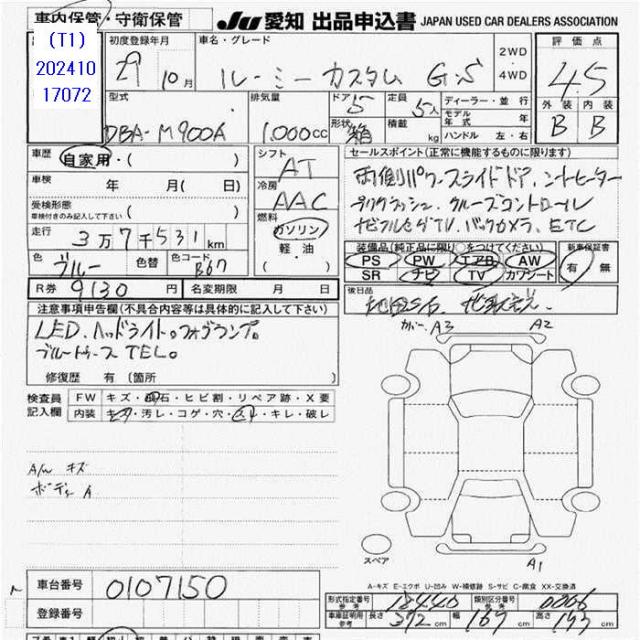 車内保管・守衛保管
JU 愛知 出品申込書 JAPAN USED CAR DEALERS ASSOCIATION
(T1)
202410
17072
初度登録年月
29 10月
車名・グレード
ルーミー カスタム G-S
2WD
・
4WD
評価点
4.5
外装 内装
B B
型式
DBA-M900A
排気量
1,000cc
ドア 5
形状 箱
定員 5人
積載 kg
ディーラー・並行
モデル年式 年
ハンドル 左・右
車歴 自家用・( )
車検 年 月( 日)
受検形態
車検付きのみ記入して下さい ( )
走行 3万7千531km
色 ブルー 色替 色コード B67
R券 9130円 名変期限 月 日
シフト AT
冷房 AAC
燃料
ガソリン
軽・油
セールスポイント(正常に機能するものに限ります)
両側パワースライドドア、シートヒーター
プッシュ、クルーズコントロール
ナビフルセグTV、バックカメラ、ETC
装備品(純正品に限り○をつけてください)
PS PW エアB AW
SR ナビ TV カワシート
新車保証書
有・無
後日品
注意事項申告欄(不具合内容等は具体的に記入して下さい)
LED.ヘッドライト.フォグランプ。
ブルートゥースTEL。
修復歴 有(箇所 )
検査員
記入欄
FW キズ・飛石・ヒビ割・リペア跡・X要
内装 キズ・汚レ・コゲ・穴・キレ・破レ
A/W キズ
ボディ A
カバー A3
A2
A1
スペア
A-キズ E-エクボ U-凹み W-補修跡 S-サビ C-腐食 XX-交換済
車台番号 0107150
登録番号
形式指定番号 参考 18440 類別区分番号 参考 0006
車庫証明用 参考 長さ 372cm 幅 167cm 高さ 173cm